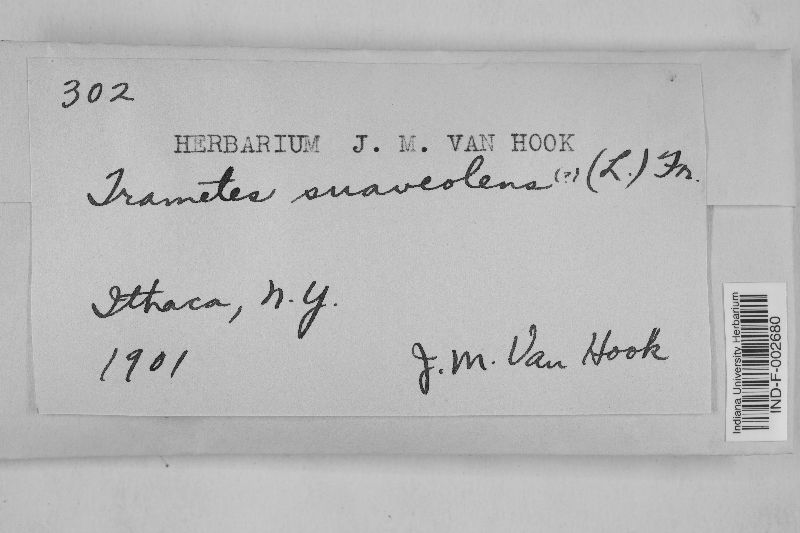 302
HERBARIUM J. M. VAN HOOK
Trametes suaveolens (?) (L.) Fr.
Ithaca, N.Y.
1901
J. M. Van Hook
Indiana University Herbarium
IND-F-002680